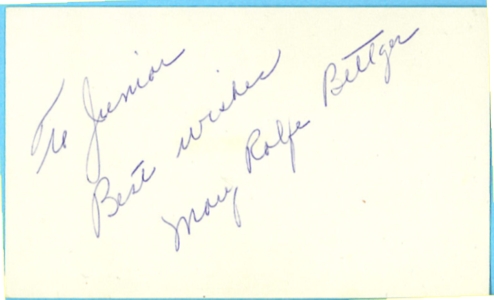 To Junior
Best wishes
Mary Rolfe Bettger